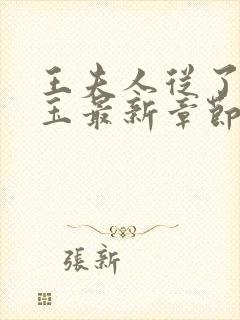 王夫人從了
玉最新章節
張新